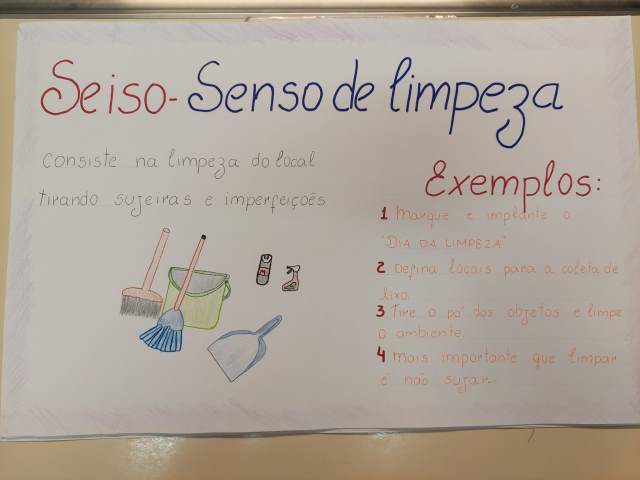 Seiso - Senso de limpeza
Consiste na limpeza do local
tirando sujeiras e imperfeições
Exemplos:
1 Marque e implante o
"DIA DA LIMPEZA"
2 Defina locais para a coleta de
lixo.
3 Tire o pó dos objetos e limpe
o ambiente.
4 mais importante que limpar
é não sujar.